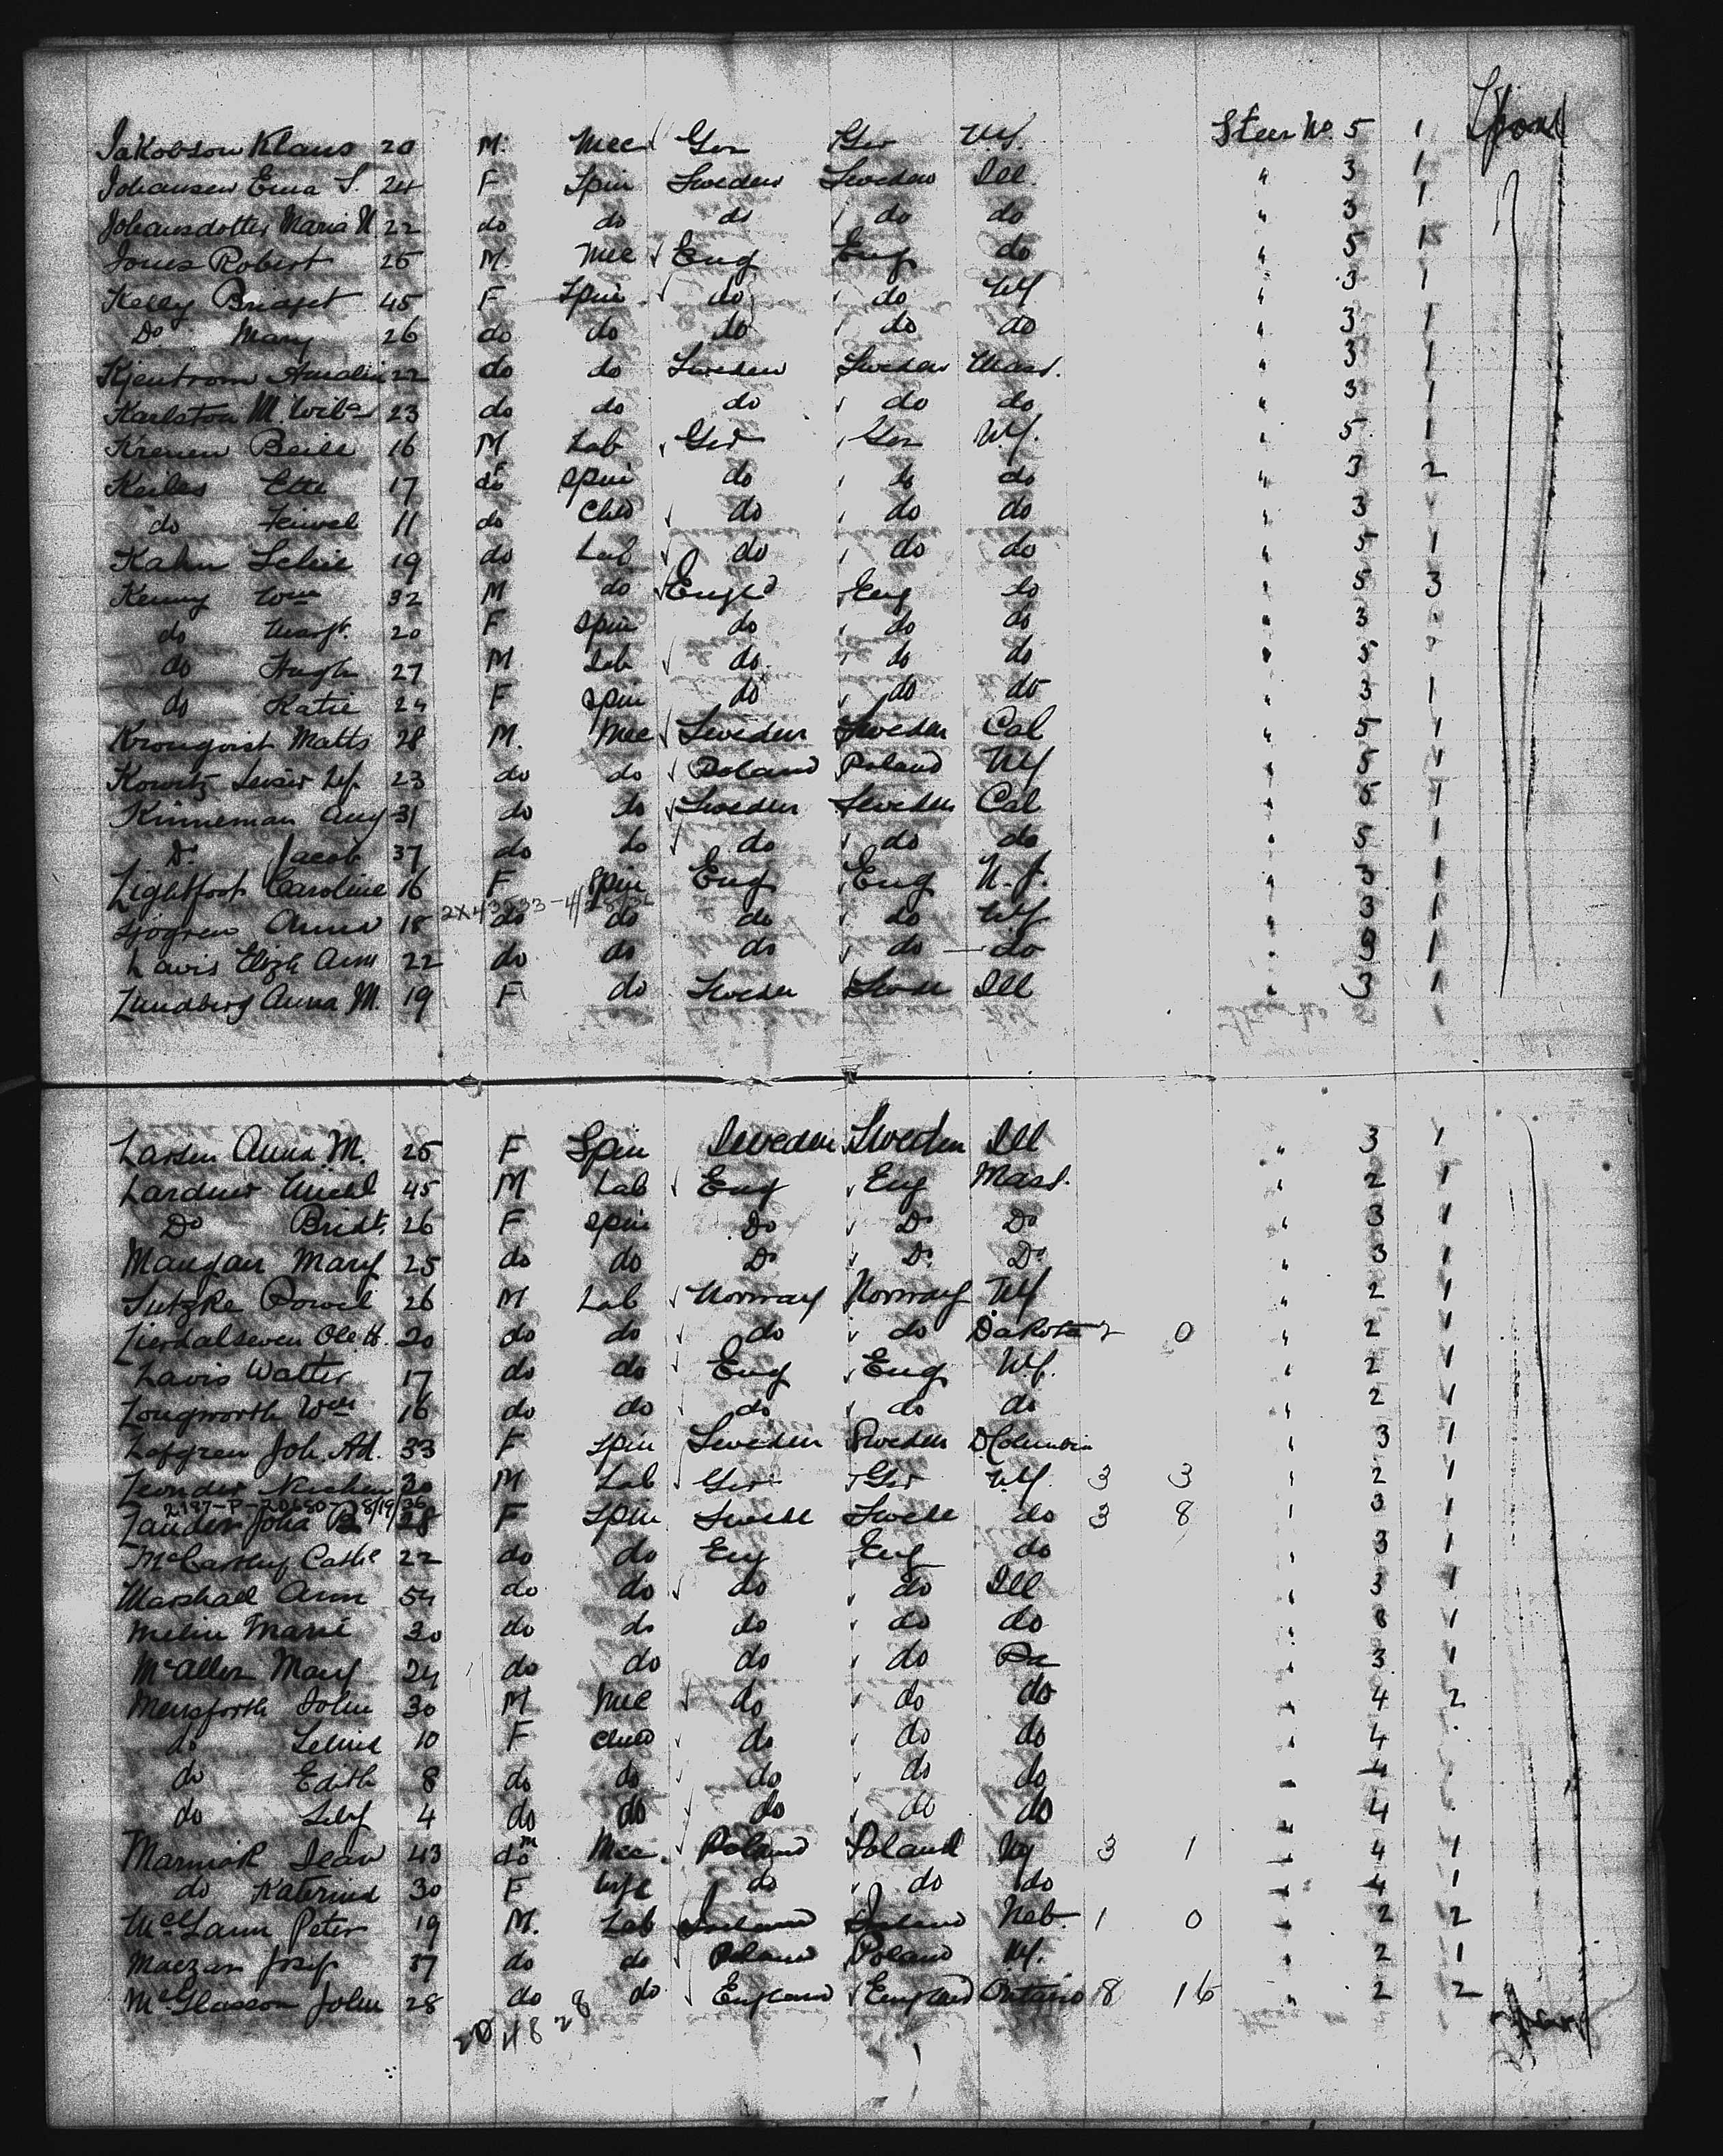 Jakobson Klaus 20 M. Mec Ger Ger NY. Steer No. 5 1
Johansen Erna S. 24 F Spin Sweden Sweden Ill. " 3 1
Johansdotter Maria N 22 do do do do do " 3 1
Jones Robert 25 M. Mec Eng Eng do " 5 1
Kelly Bridget 45 F Spin do do NY " 3 1
Do Mary 26 do do do do do " 3 1
Kjentrom Amalia 22 do do Sweden Sweden Mass. " 3 1
Karlston M. 23 do do do do do " 3 1
16 M Lab Ger Ger NY. " 5 1
Keiles Ette 17 do F Spin do do do " 3 2
do 11 do Chld do do do " 3
Kahn 19 do Lab do do do " 5 1
Kenny Wm 32 M do Engld Eng do " 5 3
do Margt. 20 F Spin do do do " 3
do Hugh 27 M. Lab do do do " 5
do Katie 24 F Spin do do do " 3 1
Kronqvist Matts 28 M. Mec Sweden Sweden Cal " 5 1
Kowitz 23 do do Poland Poland NY " 5 1
Kinneman Aug 31 do do Sweden Sweden Cal " 5 1
Do Jacob 37 do do do do do " 5 1
Lightfoot Caroline 16 F Spin Eng Eng N.J. " 3 1
Sjogren Anna 18 do do do do NY " 3 1
Lavis Elizh Ann 22 do do do do do " 3 1
Lundberg Anna M. 19 F do Sweden Sweden Ill " 3 1
Larsen Anna M. 25 F Spin Sweden Sweden Ill " 3 1
Lardner Michl 45 M Lab Eng Eng Mass. " 2 1
Do Bridt. 26 F Spin Do Do Do " 3 1
Mangan Mary 25 do do Do Do Do " 3 1
Lutzke Powel 26 M Lab Norway Norway NY " 2 1
Ole H. 20 do do do do Dakota 2 0 " 2 1
Lavis Walter 17 do do Eng Eng NY. " 2 1
Longworth Wm 16 do do do do do " 2 1
Lofgren Joh. Ad. 33 F Spin Sweden Sweden D Columbia " 3 1
20 M Lab Ger Ger NY. 3 3 " 2 1
2187-P-20680- 8/19/36
Lander Joha B 28 F Spin Swede Swede do 3 8 " 3 1
McCarthy Cathe 22 do do Eng Eng do " 3 1
Marshall Ann 54 do do do do Ill " 3 1
Melin Marie 30 do do do do do " 3 1
McAller Mary 24 do do do do Pa " 3 1
Mensforth John 30 M Mec do do do " 4 2
do 10 F Child do do do " 4
do Edith 8 do do do do do " 4
do Lily 4 do do do do do " 4
Marniok 43 do m Mec. Poland Poland Ny 3 1 " 4 1
do Katerina 30 F Wife do do do " 4 1
Peter 19 M. Lab Ireland Ireland Neb. 1 0 " 2 2
Maczan Josif 37 do do Poland Poland NY. " 2 1
McGlasson John 28 do do England England Ontario 8 16 " 2 2